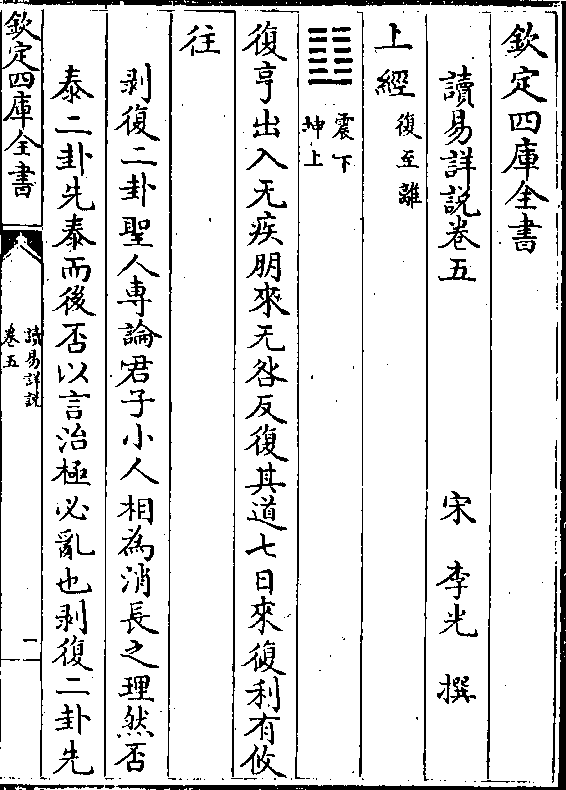 欽定四庫全書
讀易詳説卷五
宋 李光 撰
上經復至離
震下
坤上
復亨出入无疾朋來无咎反復其道七日來復利有攸
往
剥復二卦聖人專論君子小人相為消長之理然否
泰二卦先泰而後否以言治極必亂也剥復二卦先
欽定四庫全書
讀易詳説
卷五
一